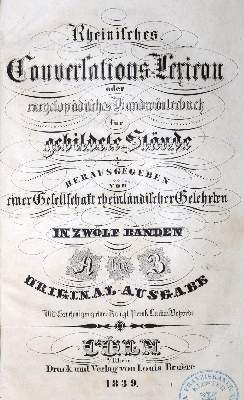 Rheinisches
Conversations Lexicon
oder
encyclopädisches Handwörterbuch
für
gebildete Stände
HERAUSGEGEBEN
von
einer Gesellschaft rheinländischer Gelehrten
IN ZWÖLF BANDEN
A B
ORIGINAL AUSGABE
Mit Königl. Preuß.
CÖLN
Druck und Verlag von Louis Bruère
1839.